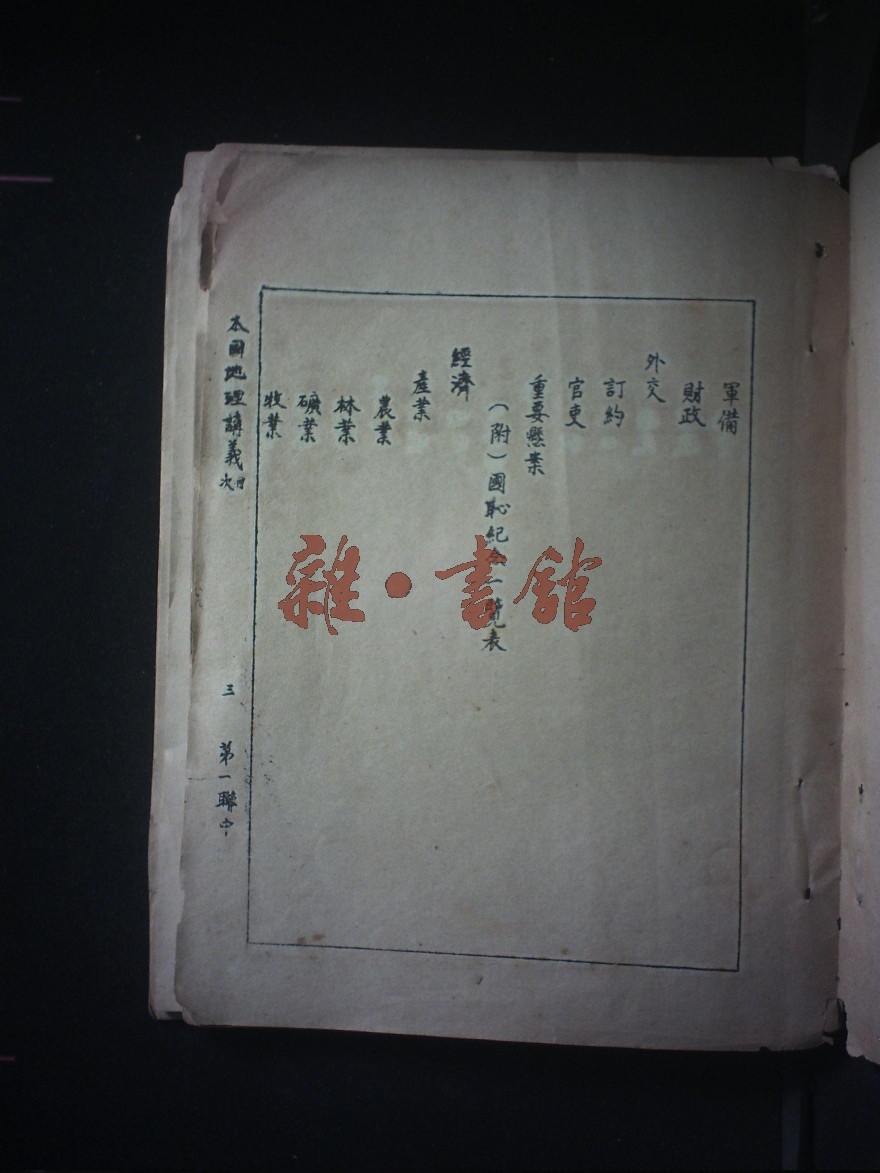 軍備
財政
外交
訂約
官吏
重要懸案
（附）國恥紀念一覽表
經濟
產業
農業
林業
礦業
牧業
本國地理講義 目次 三 第一聯中
雜·書館